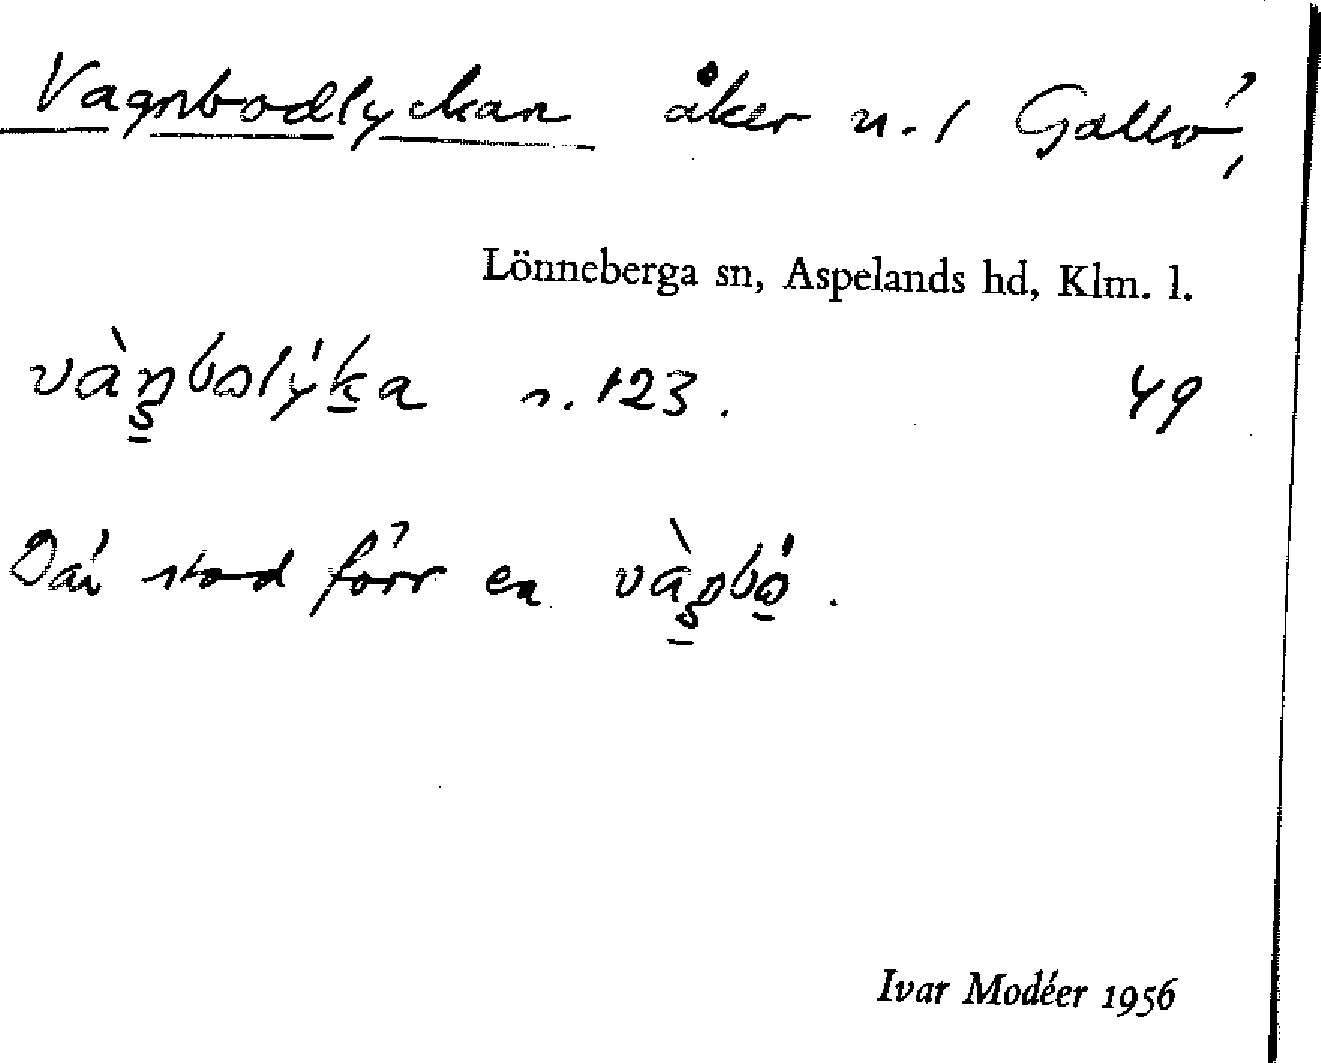 Vagnbodlyckan åker n. 1 Gallö,
Lönneberga sn, Aspelands hd, Klm. l.
vàŋbolýka n. 123. 49
Där stod förr en vàŋbó.
Ivar Modéer 1956